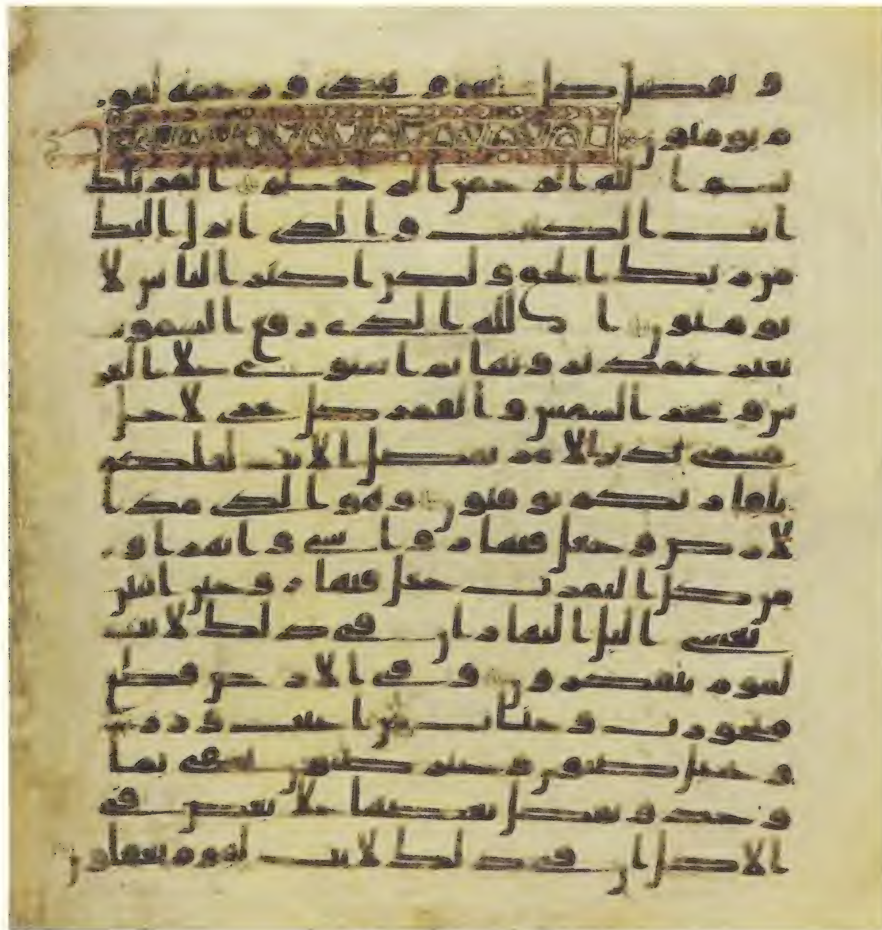 و تفصيل كل شى و هدى و رحمة لقو
م يومنون
بسم الله الرحمن الرحيم المر تلك
ايت الكتب و الذى انزل اليك
من ربك الحق و لكن اكثر الناس لا
يومنون الله الذى رفع السموت
بغير عمد ترونها ثم استوى على العر
ش و سخر الشمس و القمر كل يجرى لاجل
مسمى يدبر الامر يفصل الايت لعلكم
بلقا ربكم توقنون و هو الذى مد ا
لارض و جعل فيها روسى و انهرا و
من كل الثمرت جعل فيها زوجين اثنين
يغشى اليل النهار ان فى ذلك لايت
لقوم يتفكرون و فى الارض قطع
متجورت و جنات من اعنب و زرع
و نخيل صنون و غير صنون يسقى بما
وحد و نفضل بعضها على بعض فى
الاكل ان فى ذلك لايت لقوم يعقلون